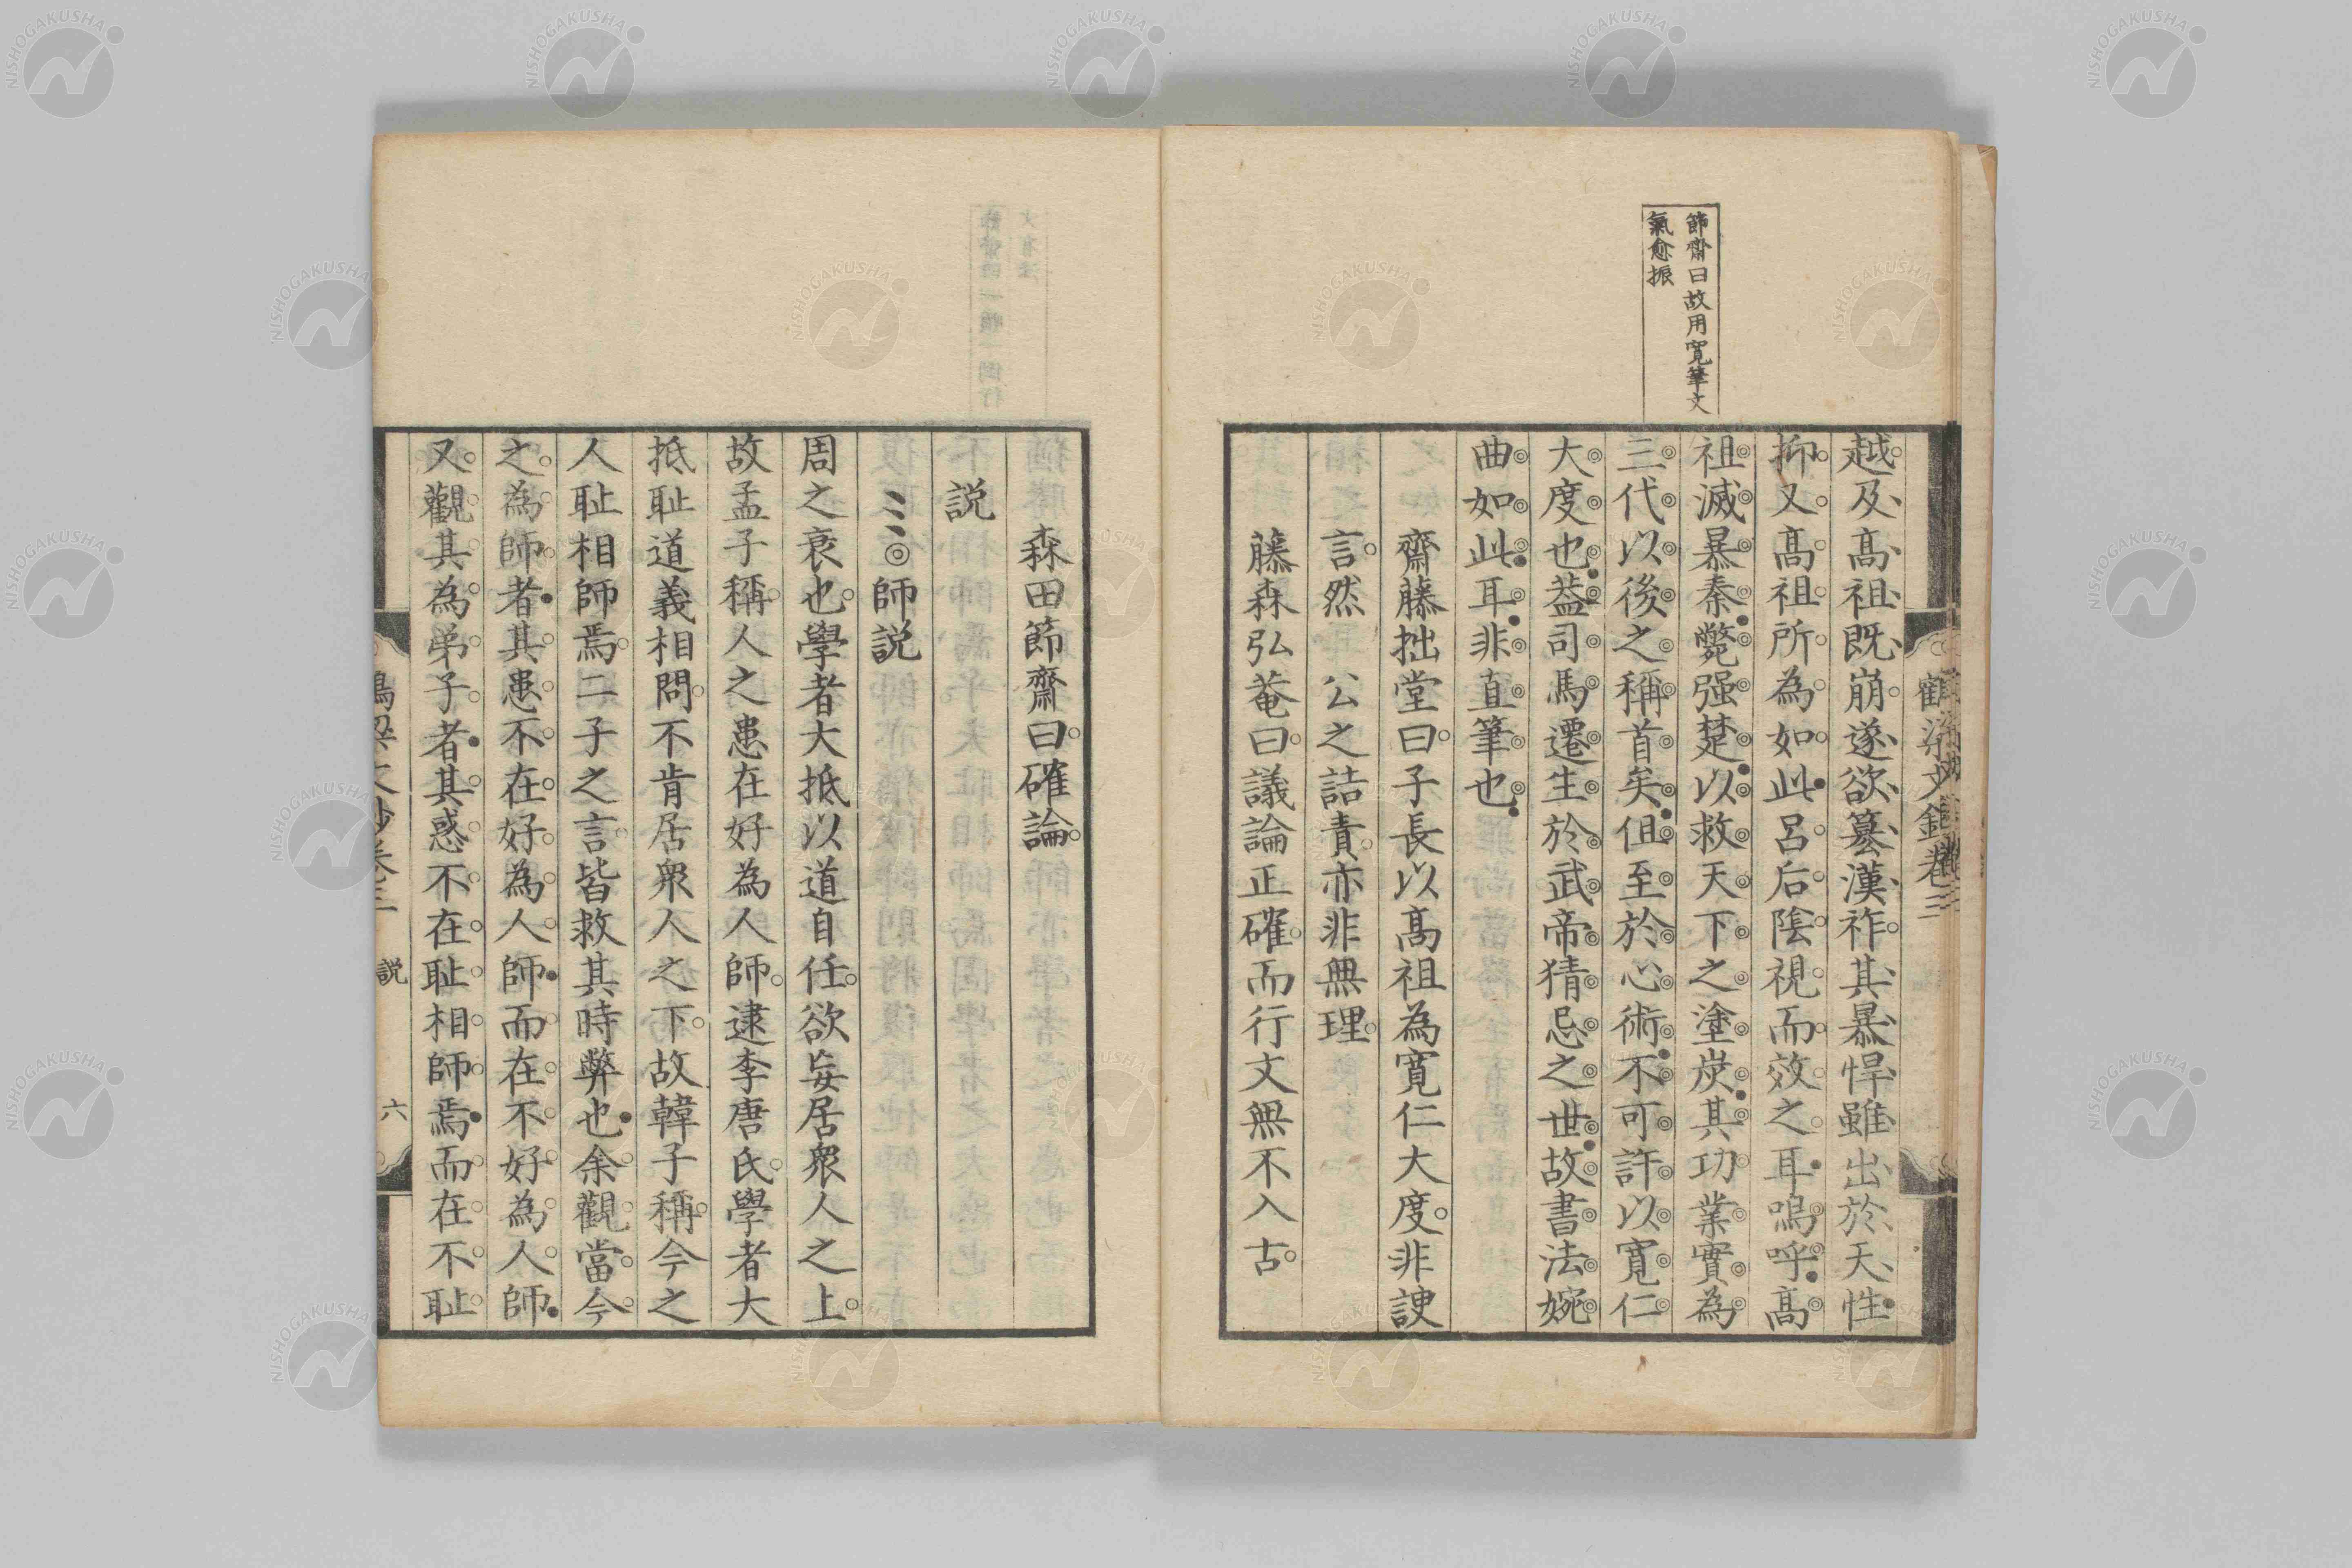 節齋曰故用寬筆文
氣愈振
越及高祖既崩遂欲簒漢祚其暴悍雖出於天性
抑又高祖所為如此呂后陰視而效之耳嗚呼高
祖滅暴秦斃强楚以救天下之塗炭其功業實為
三代以後之稱首矣但至於心術不可許以寬仁
大度也葢司馬遷生於武帝猜忌之世故書法婉
曲如此耳非直筆也
齋藤拙堂曰子長以高祖為寬仁大度非諛
言然公之詰責亦非無理
藤森弘菴曰議論正確而行文無不入古
森田節齋曰確論
説
師説
周之衰也學者大抵以道自任欲妄居衆人之上
故孟子稱人之患在好為人師逮李唐氏學者大
抵耻道義相問不肯居衆人之下故韓子稱今之
人耻相師焉二子之言皆救其時弊也余觀當今
之為師者其患不在好為人師而在不好為人師
又觀其為弟子者其惑不在耻相師焉而在不耻
説
六
NISHOGAKUSHA